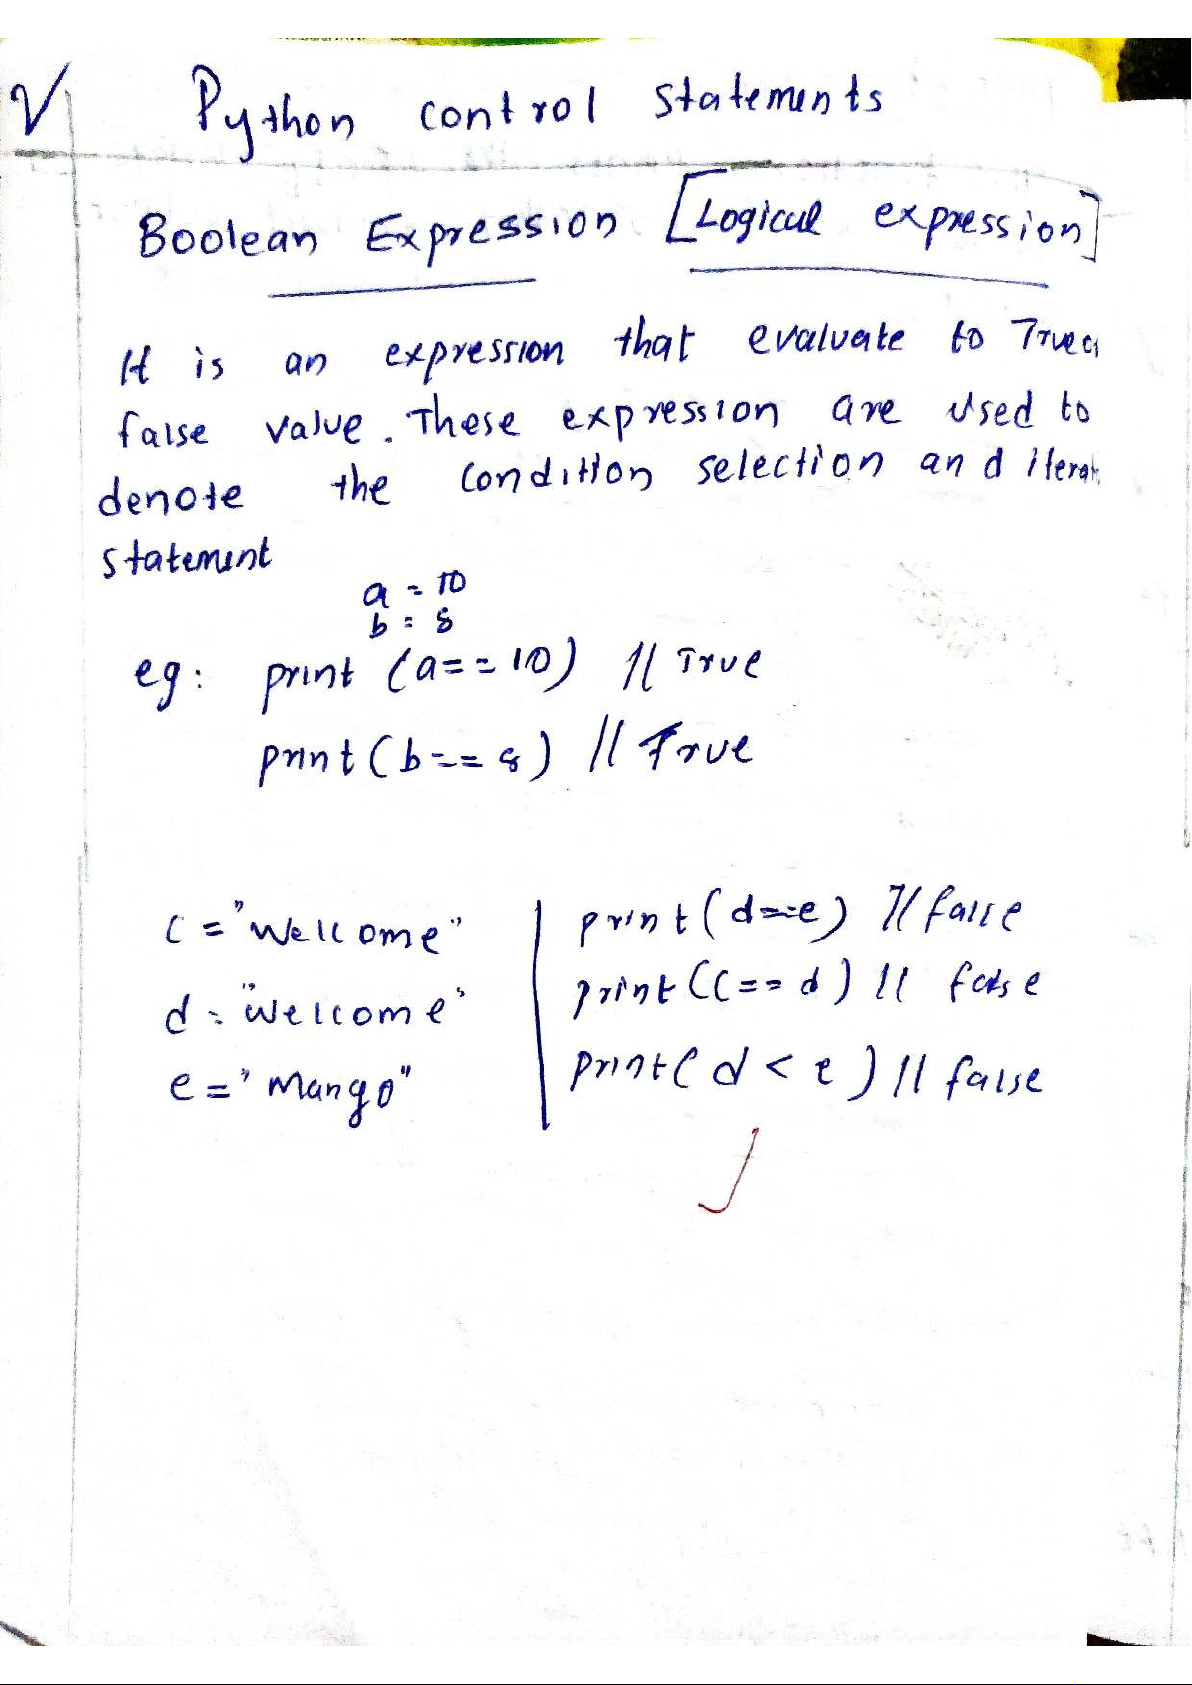 V Python control statements
Boolean Expression [Logical expression]
It is an expression that evaluate to True
false value. These expression are used to
denote the condition selection and iterat
statement
a = 10
b = 8
eg: print (a == 10) // True
print (b == 8) // True
c = "Wellcome" | print (d == e) // false
d = "Welcome" | print (c == d) // false
e = "Mango" | print ( d < e ) // false